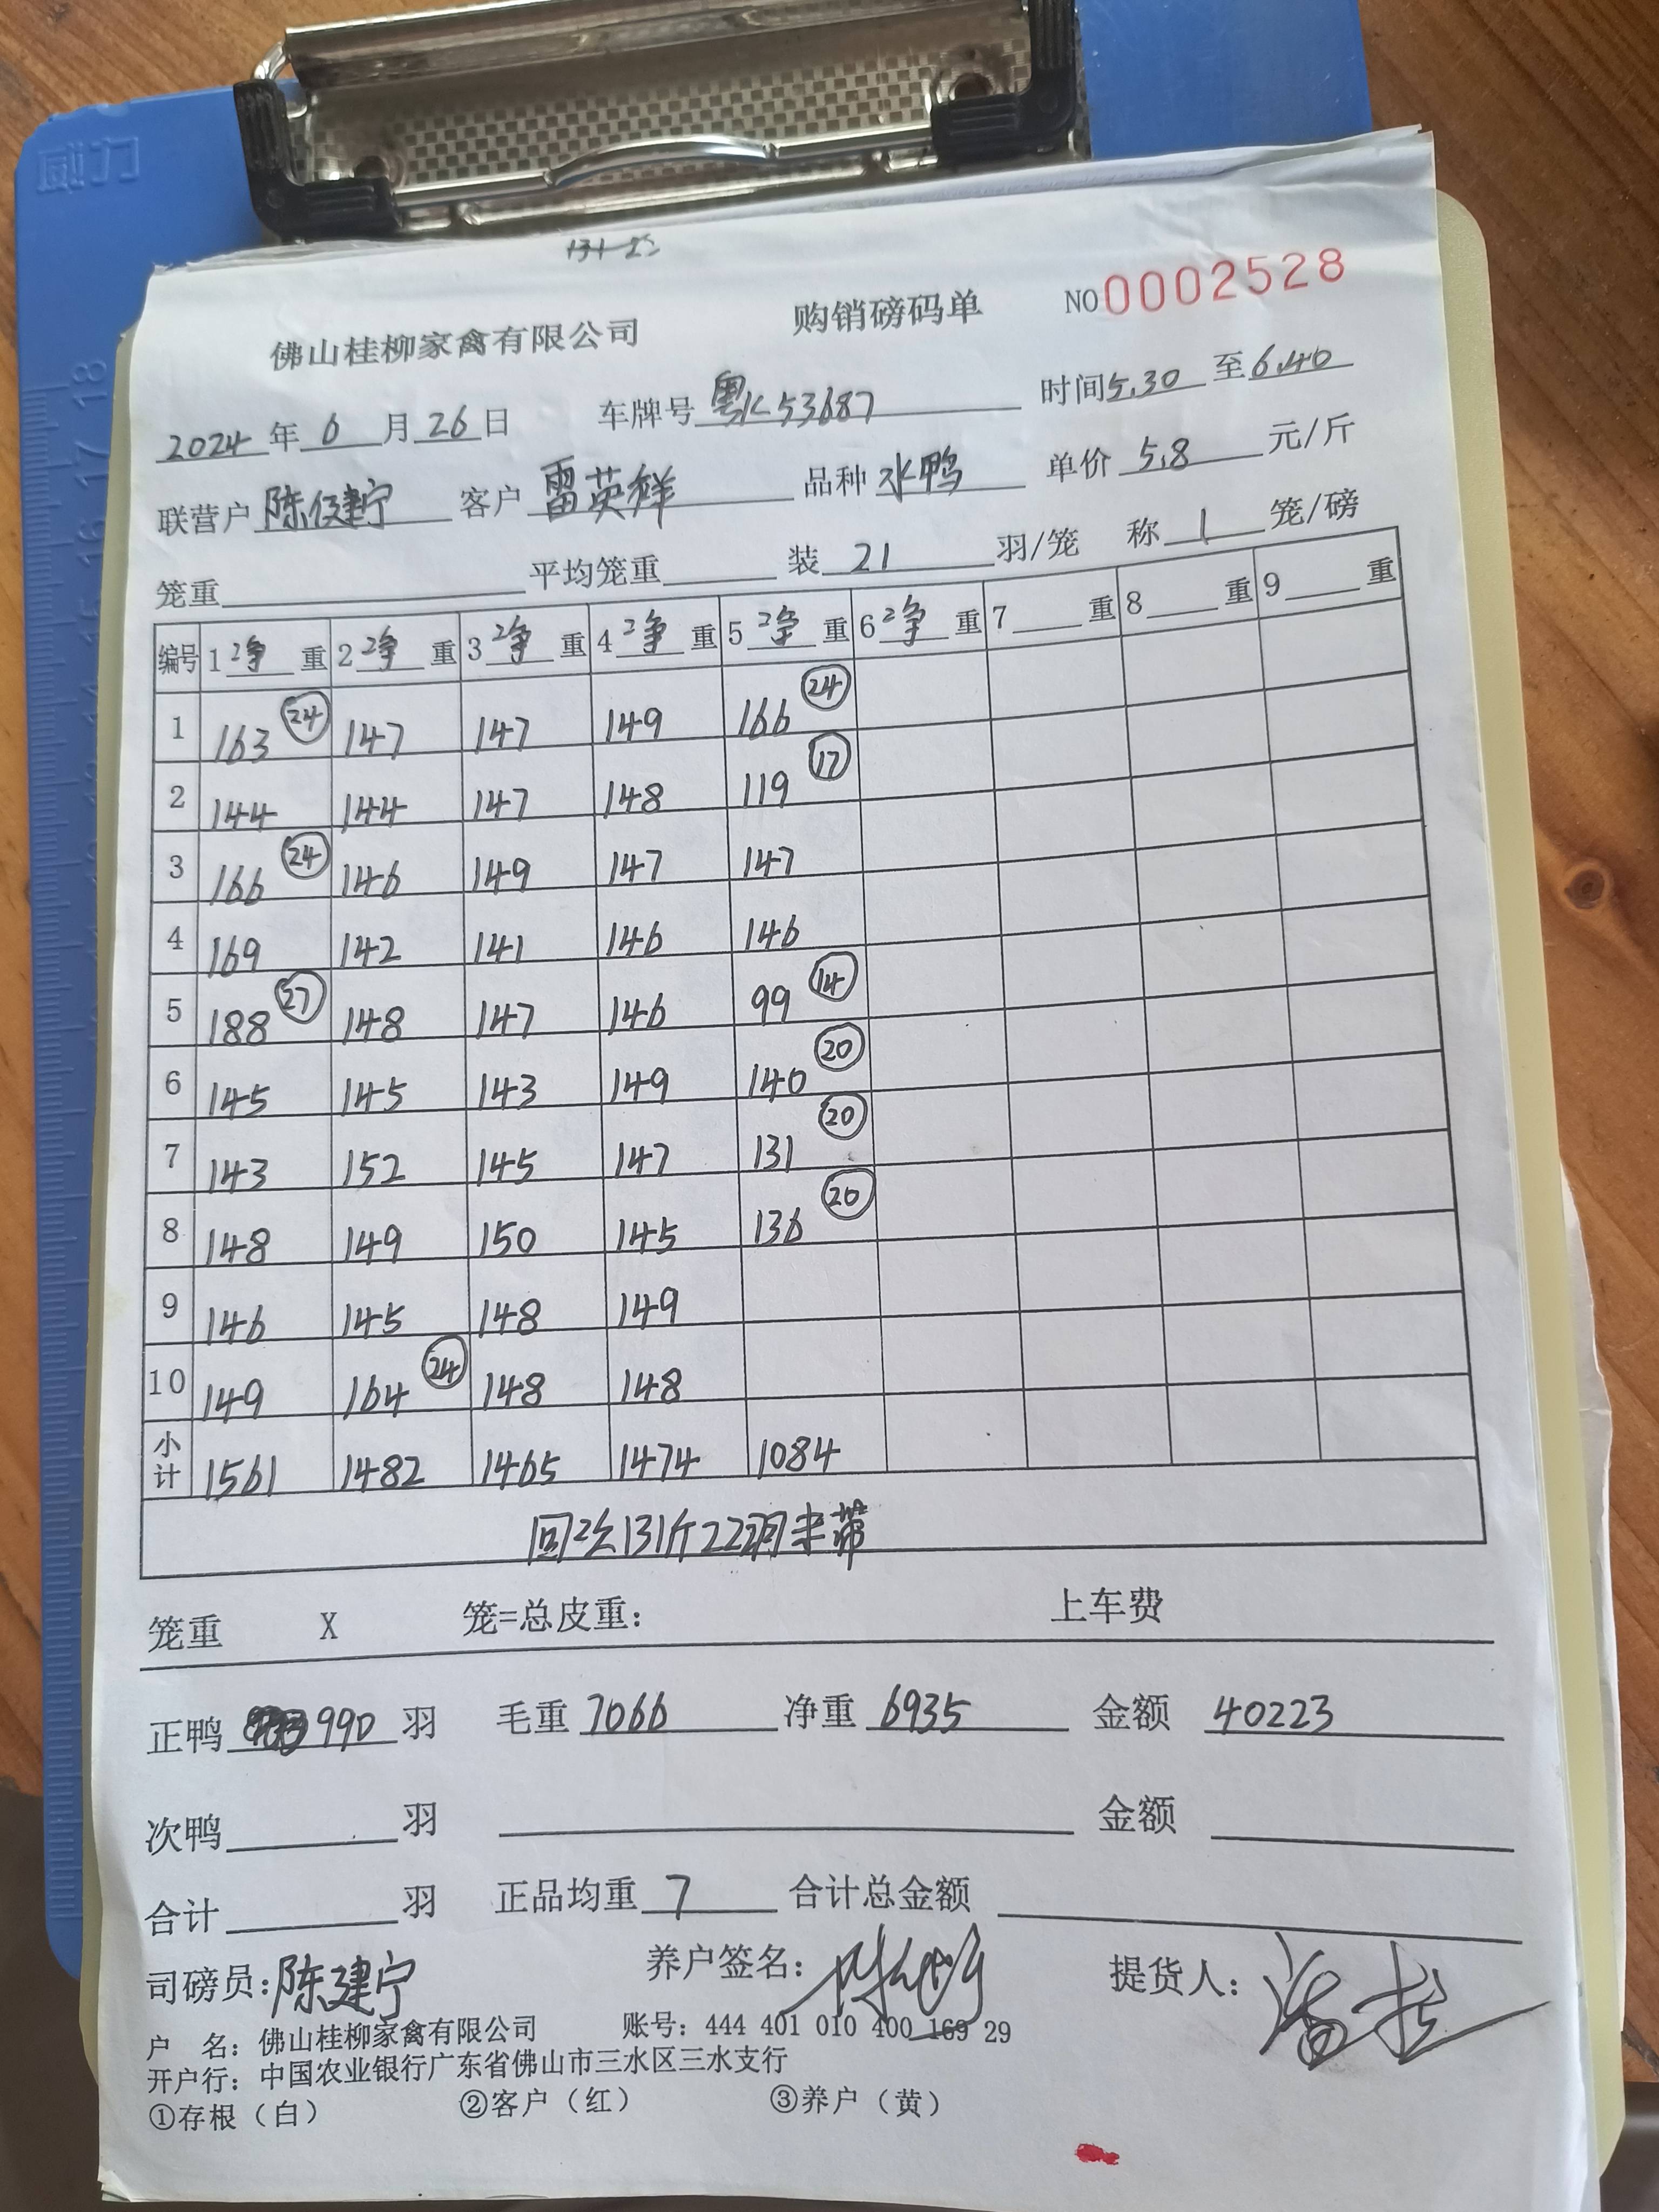 威力
18
17
16
15
131 22
佛山桂柳家禽有限公司 购销磅码单 NO0002528
2024年6月26日 车牌号粤K53687 时间5.30至6.40
联营户陈建宁 客户雷英辉 品种水鸭 单价5.8元/斤
笼重 平均笼重 装21羽/笼 称1笼/磅
编号 1净重 2净重 3净重 4净重 5净重 6净重 7重 8重 9重
1 163 24 147 147 149 166 24
2 144 144 147 148 119 17
3 166 24 146 149 147 147
4 169 142 141 146 146
5 188 27 148 147 146 99 14
6 145 145 143 149 140 20
7 143 152 145 147 131 20
8 148 149 150 145 136 20
9 146 145 148 149
10 149 164 24 148 148
小计 1561 1482 1465 1474 1084
回次131斤22羽未带
笼重 X 笼=总皮重： 上车费
正鸭990羽 毛重7066 净重6935 金额40223
次鸭 羽 金额
合计 羽 正品均重7 合计总金额
司磅员:陈建宁 养户签名： 提货人：
户 名：佛山桂柳家禽有限公司 账号：444 401 010 400 169 29
开户行：中国农业银行广东省佛山市三水区三水支行
①存根（白） ②客户（红） ③养户（黄）